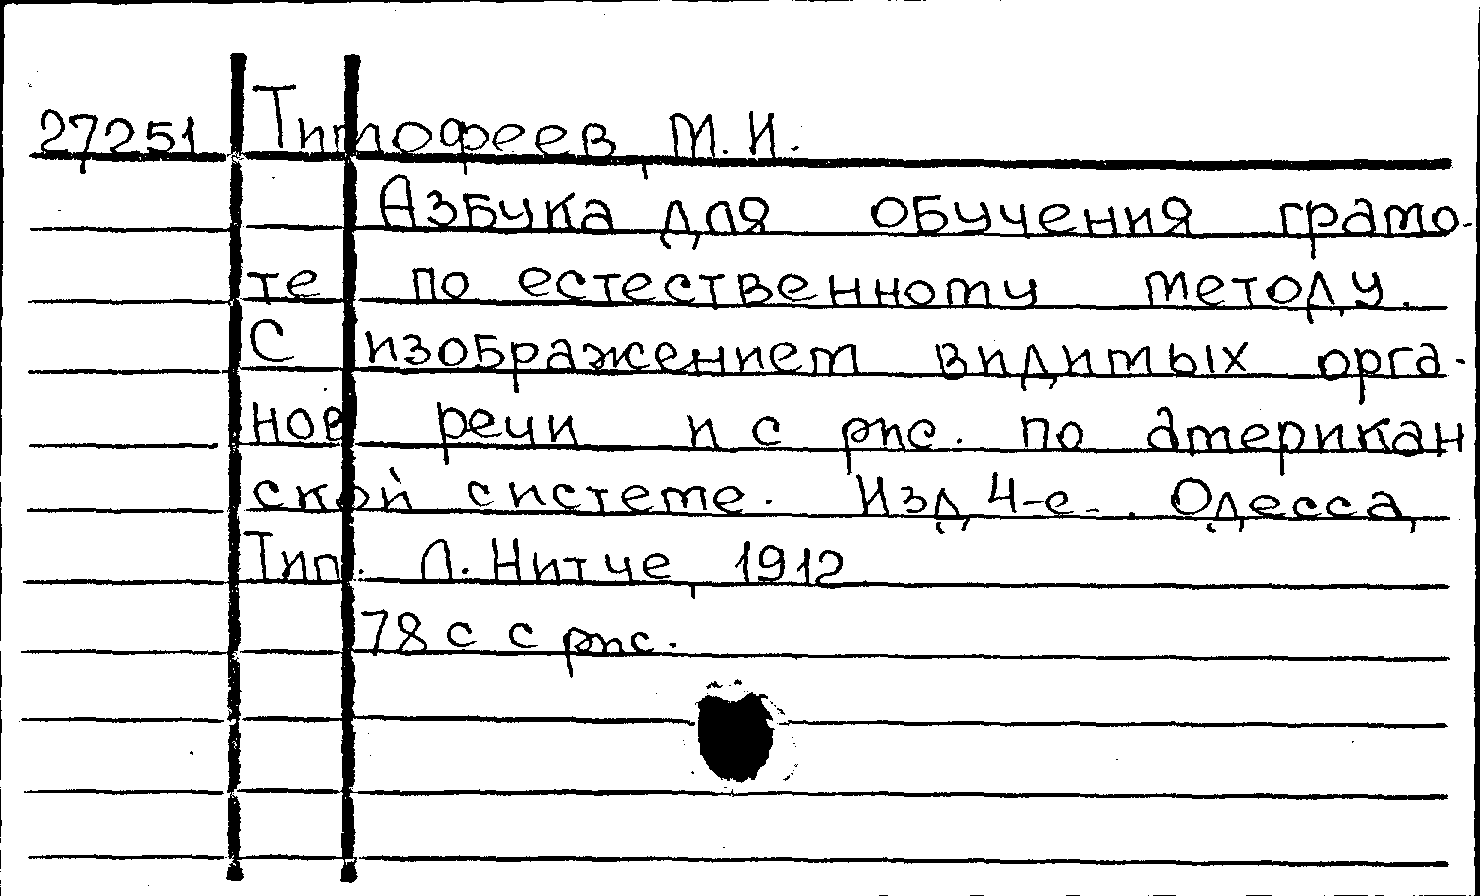 27251 Тимофеев, М. И.
Азбука для обучения грамо-
те по естественному методу.
С изображением видимых орга-
нов речи и с рис. по американ
ской системе. Изд. 4-е. Одесса,
Тип. Л. Нитче, 1912
78 с с рис.